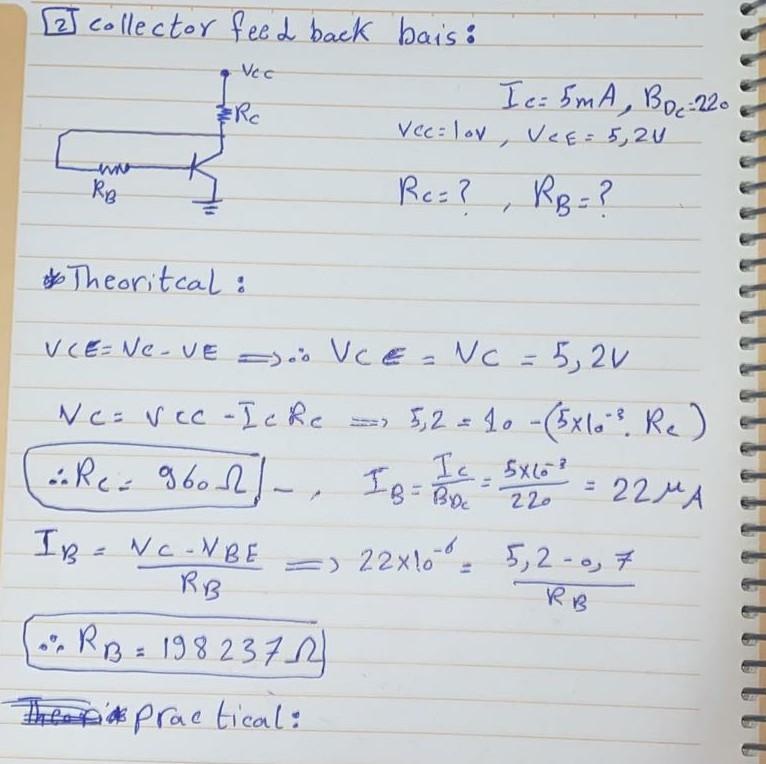 [2] collector feed back bais:
Vcc
Rc
RB
Ic = 5mA, BDc=220
Vcc=10V, VCE = 5,2V
Rc = ?, RB = ?
* Theoritcal:
VCE = VC - VE ⟹ ∴ VCE = VC = 5,2V
VC = VCC - Ic Rc ⟹ 5,2 = 10 - (5×10⁻³. Rc)
∴ Rc = 960 Ω -, IB = Ic/BDc = 5×10⁻³/220 = 22 μA
IB = VC - VBE/RB ⟹ 22×10⁻⁶ = 5,2 - 0,7/RB
∴ RB = 198 237 Ω
* practical: